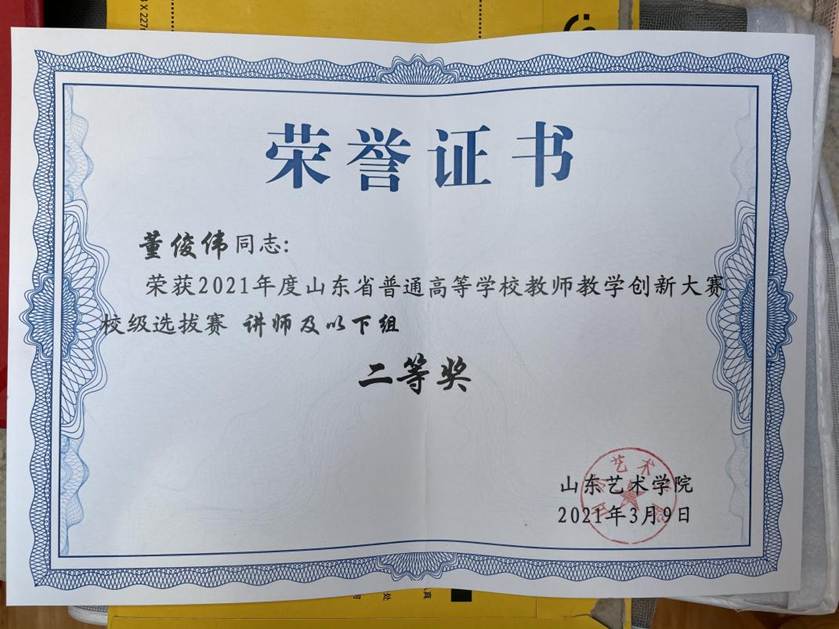 荣誉证书
董俊伟同志:
荣获2021年度山东省普通高等学校教师教学创新大赛
校级选拔赛 讲师及以下组
二等奖
山东艺术学院
2021年3月9日